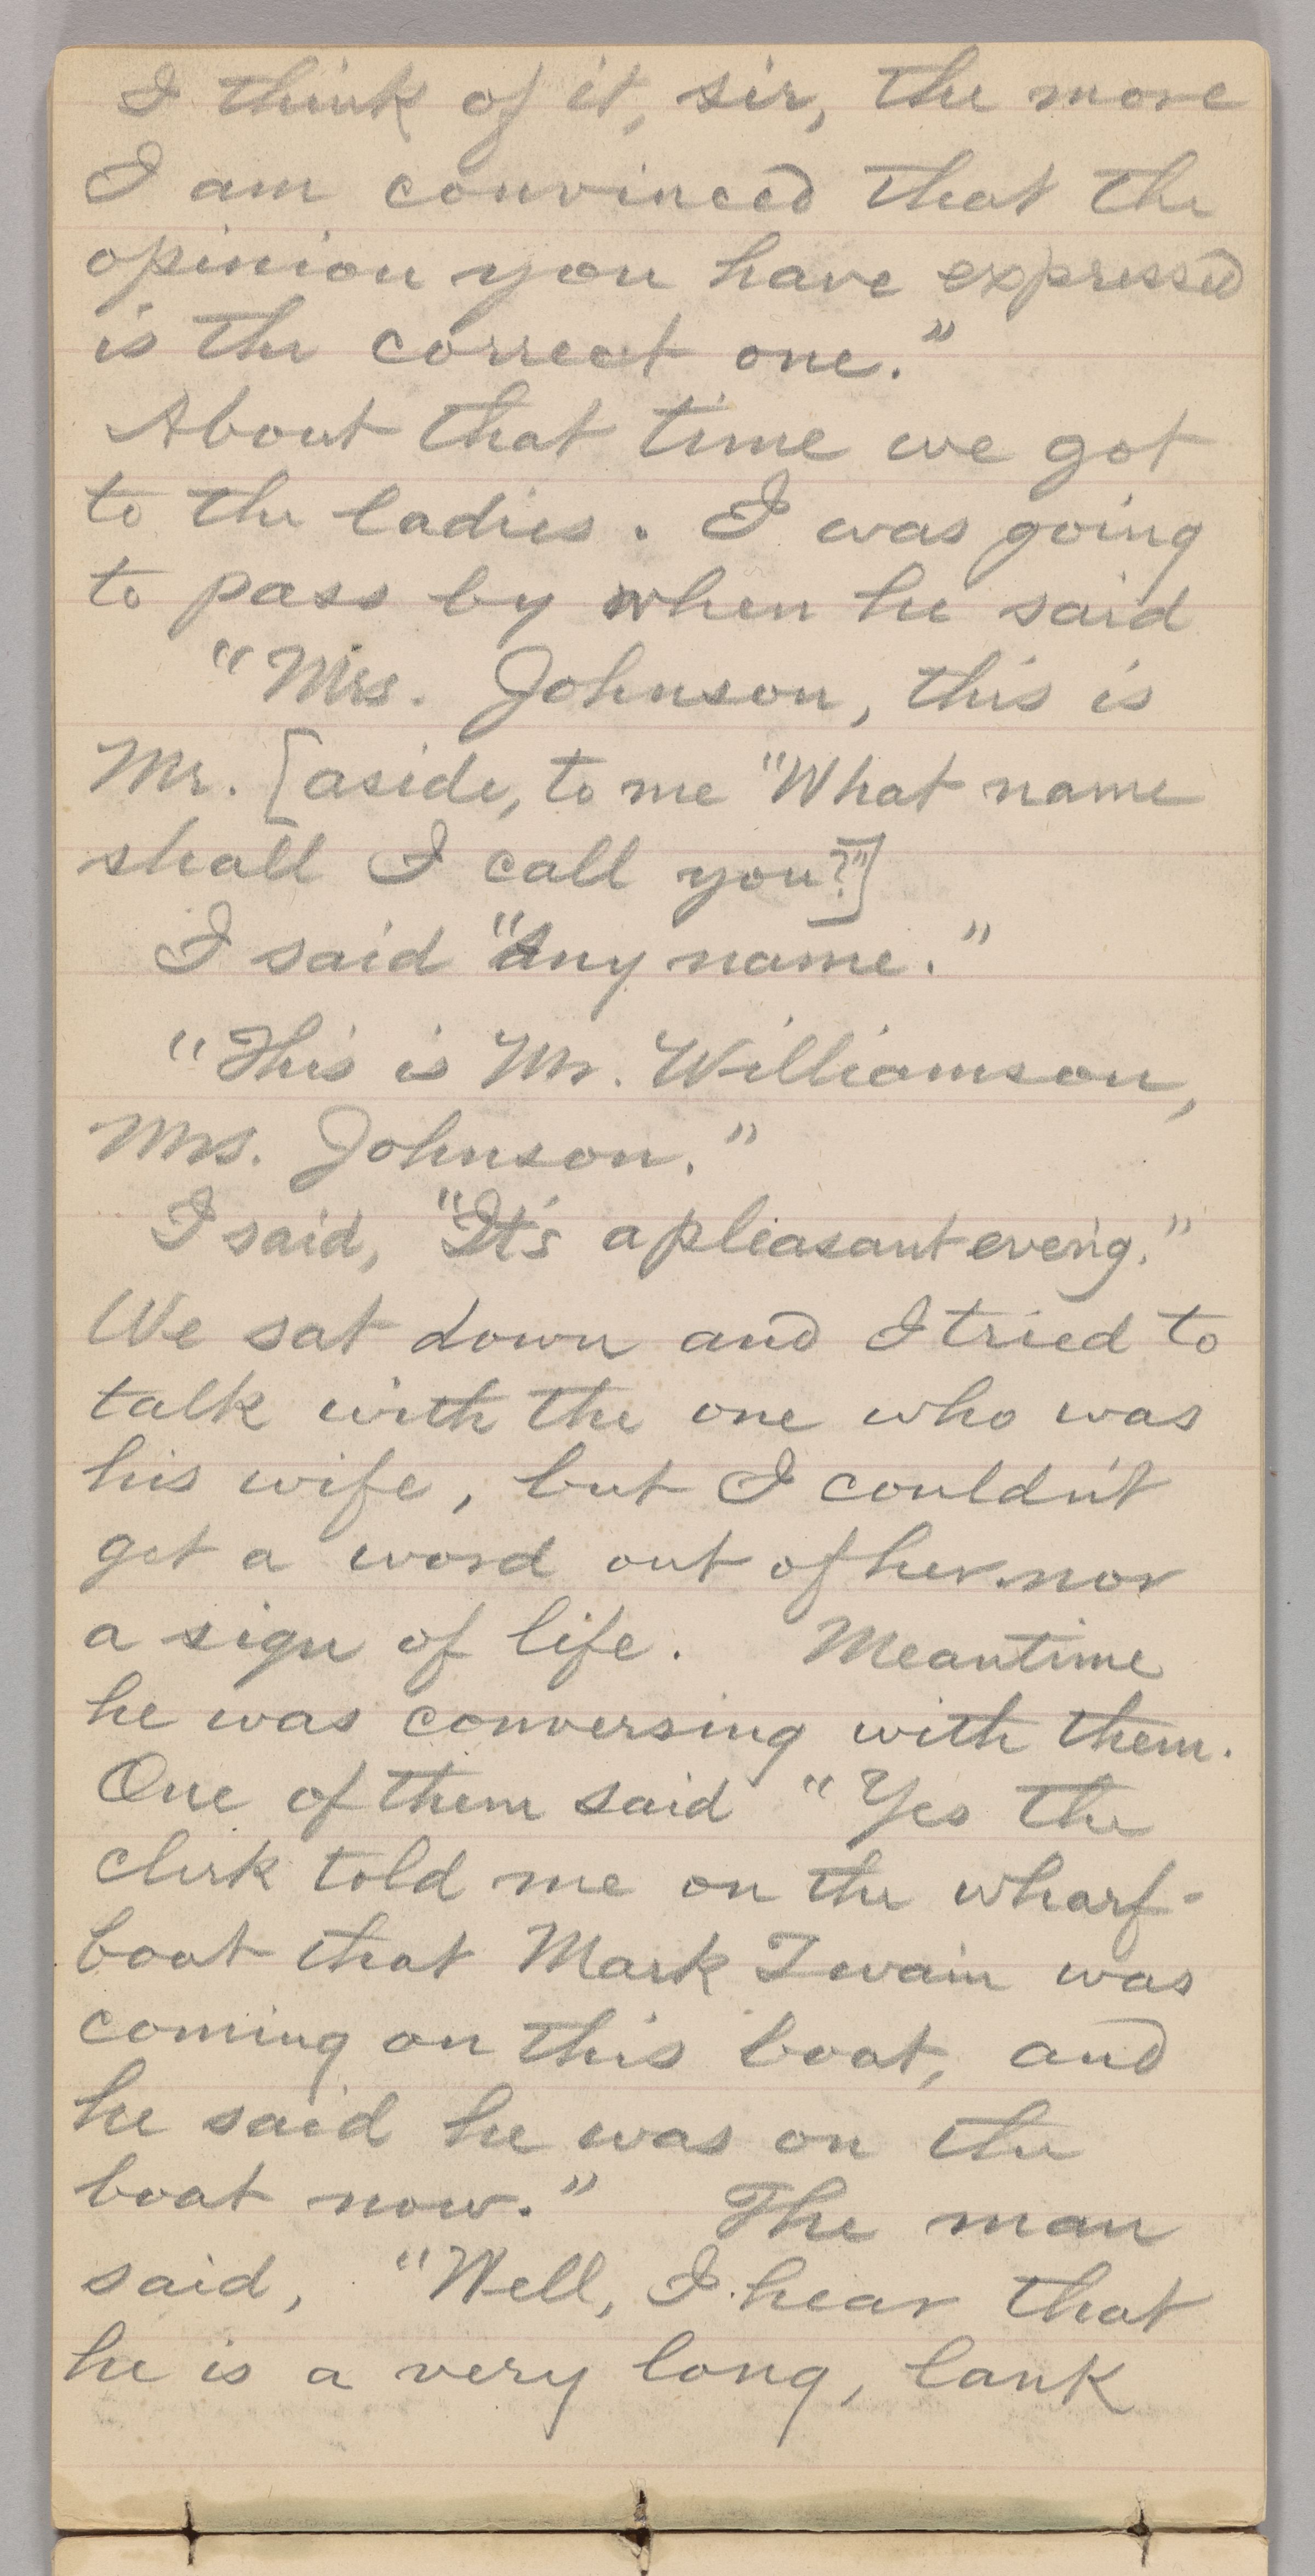 I think of it, sir, the more
I am convinced that the
opinion you have expressed
is the correct one."
About that time we got
to the ladies. I was going
to pass by when he said
"Mrs. Johnson, this is
Mr. [aside, to me "What name
shall I call you?"]
I said "Any name."
"This is Mr. Williamson,
Mrs. Johnson."
I said, "It's a pleasant even'g."
We sat down and I tried to
talk with the one who was
his wife, but I couldn't
get a word out of her nor
a sign of life. Meantime
he was conversing with them.
One of them said "Yes the
clerk told me on the wharf-
boat that Mark Twain was
coming on this boat, and
he said he was on the
boat now." The man
said, "Well, I hear that
he is a very long, lank